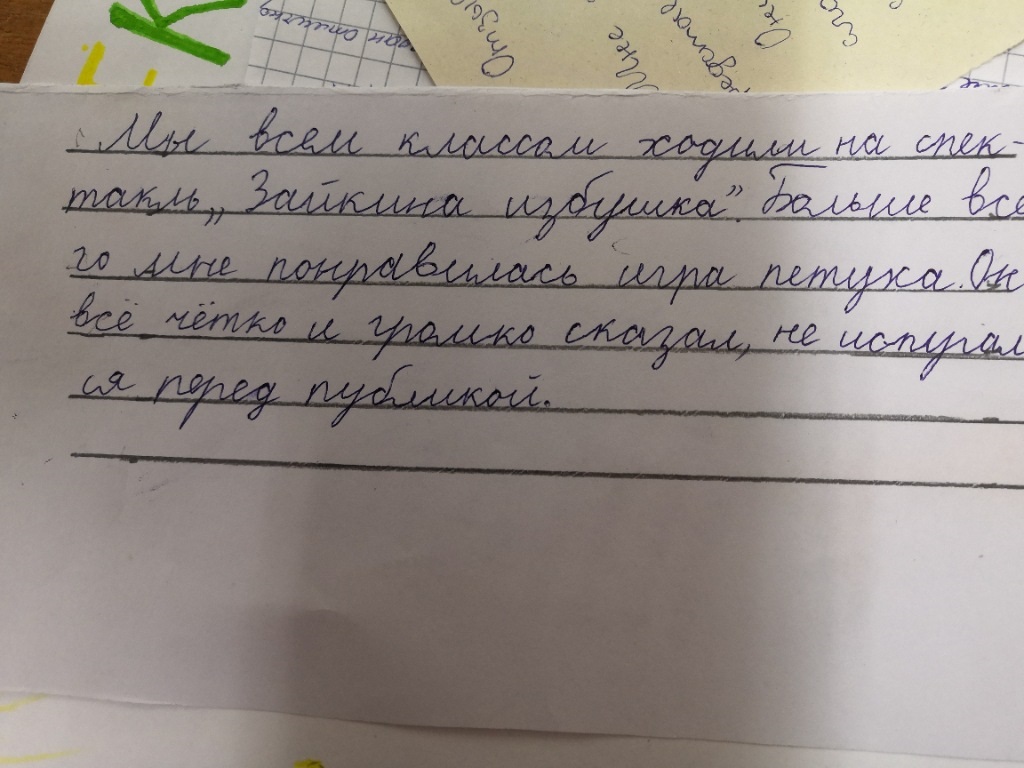 Мы всем классом ходили на спек-
такль „Зайкина избушка”. Больше все
го мне понравилась игра петуха. Он
всё чётко и громко сказал, не испугал
ся перед публикой.